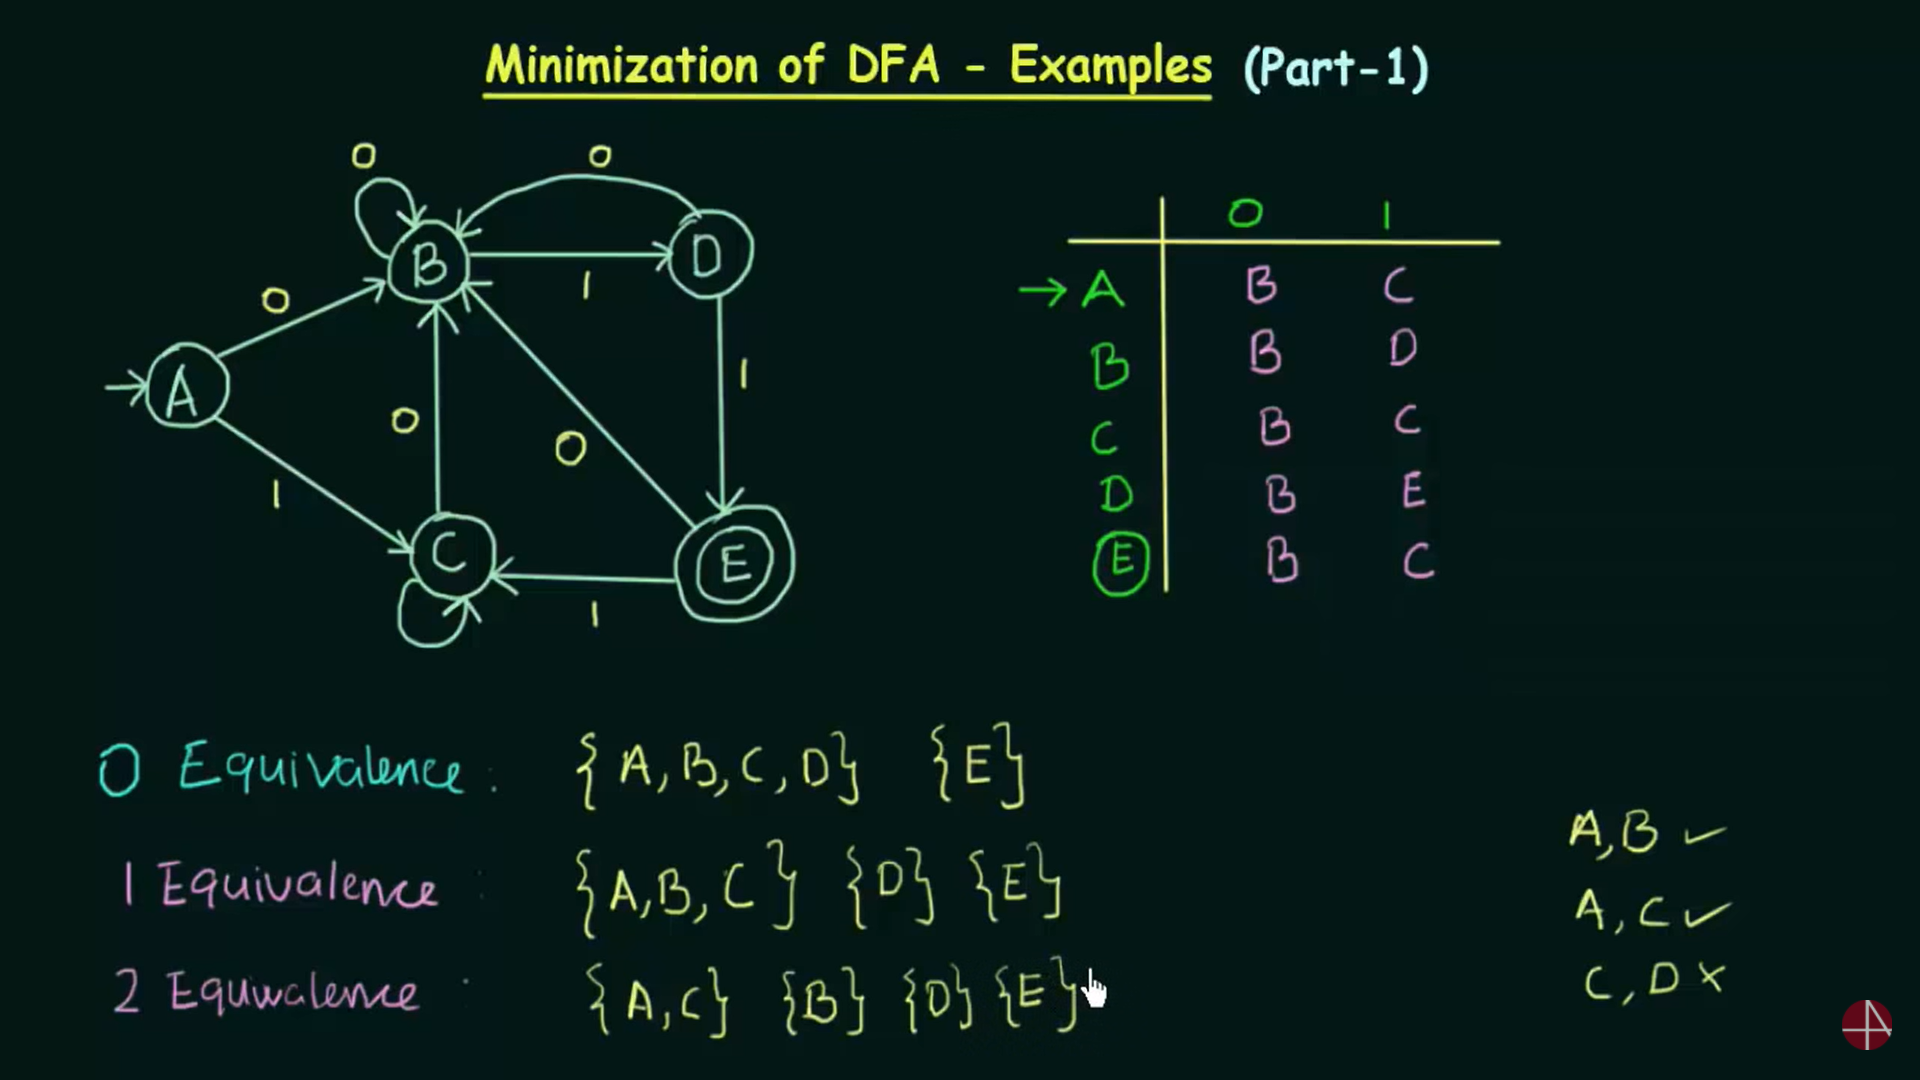 Minimization of DFA - Examples (Part-1)
0
0
B
D
1
0
1
A
0
0
1
C
E
1
0 1
→ A B C
B B D
C B C
D B E
E B C
0 Equivalence : {A, B, C, D} {E}
1 Equivalence : {A, B, C} {D} {E}
2 Equivalence : {A, C} {B} {D} {E}
A, B ✓
A, C ✓
C, D ×